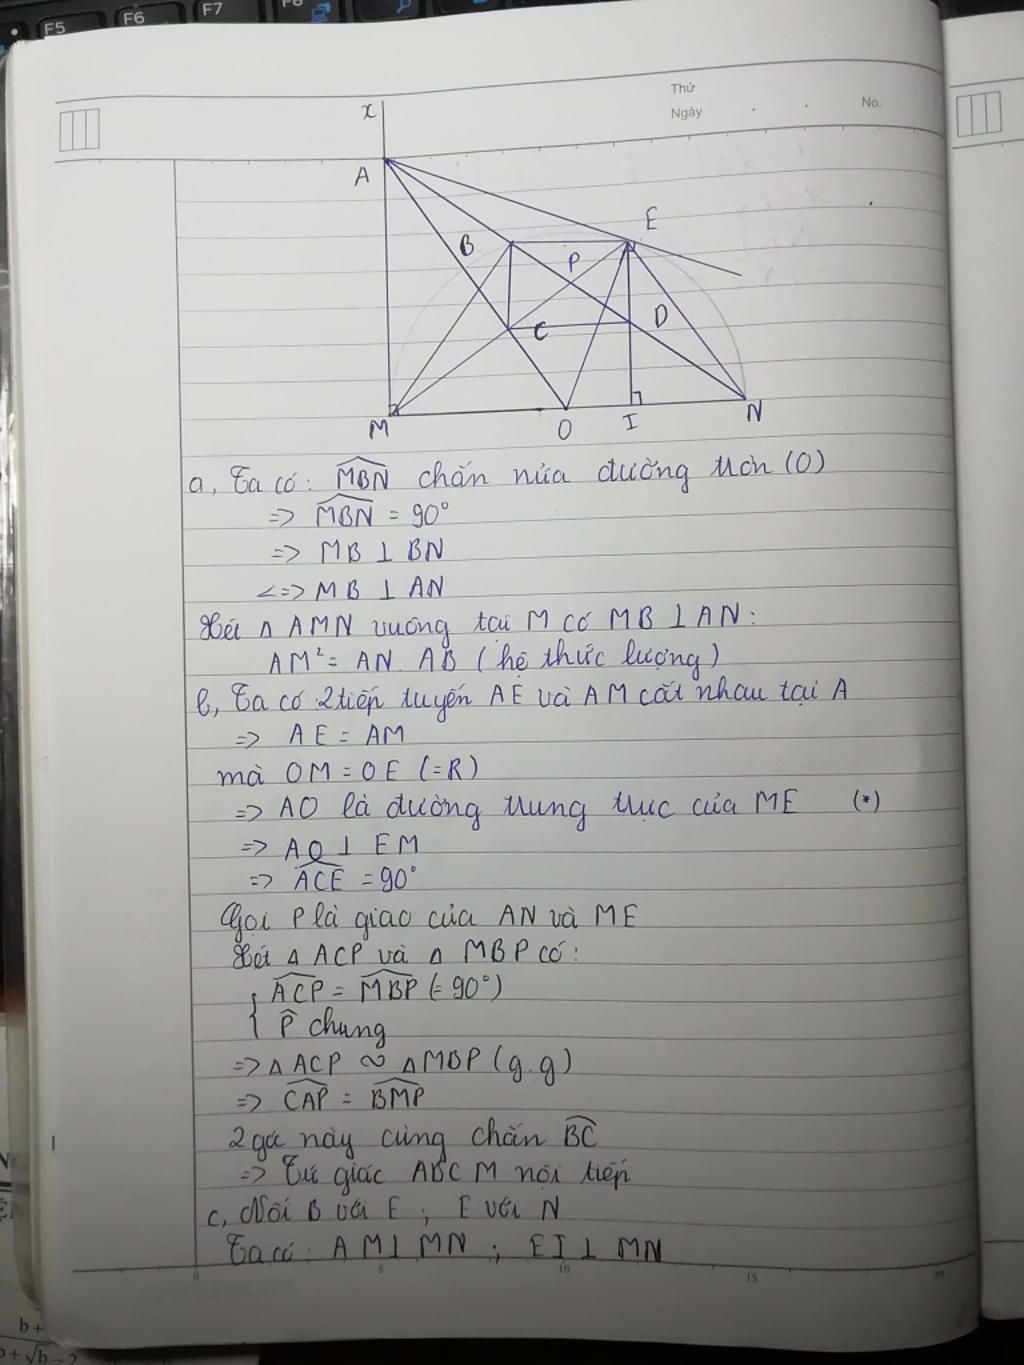 F5 F6 F7 F8
Thứ
Ngày . . No.
x
A
E
B
P
C
D
M
O
I
N
a, Ta có: MBN chắn nửa đường tròn (O)
=> MBN = 90°
=> MB ⊥ BN
<=> MB ⊥ AN
Xét Δ AMN vuông tại M có MB ⊥ AN:
AM² = AN. AB (hệ thức lượng)
b, Ta có 2 tiếp tuyến AE và AM cắt nhau tại A
=> AE = AM
mà OM = OE (=R)
=> AO là đường trung trực của ME (*)
=> AO ⊥ EM
=> ACE = 90°
Gọi P là giao của AN và ME
Xét Δ ACP và Δ MBP có:
{ ACP = MBP (= 90°)
P̂ chung
=> Δ ACP ∽ Δ MBP (g.g)
=> CAP = BMP
2 góc này cùng chắn BC
=> Tứ giác ABCM nội tiếp
c, Nối B với E ; E với N
Ta có: AM ⊥ MN ; EI ⊥ MN
0 5 10 15 20
b+